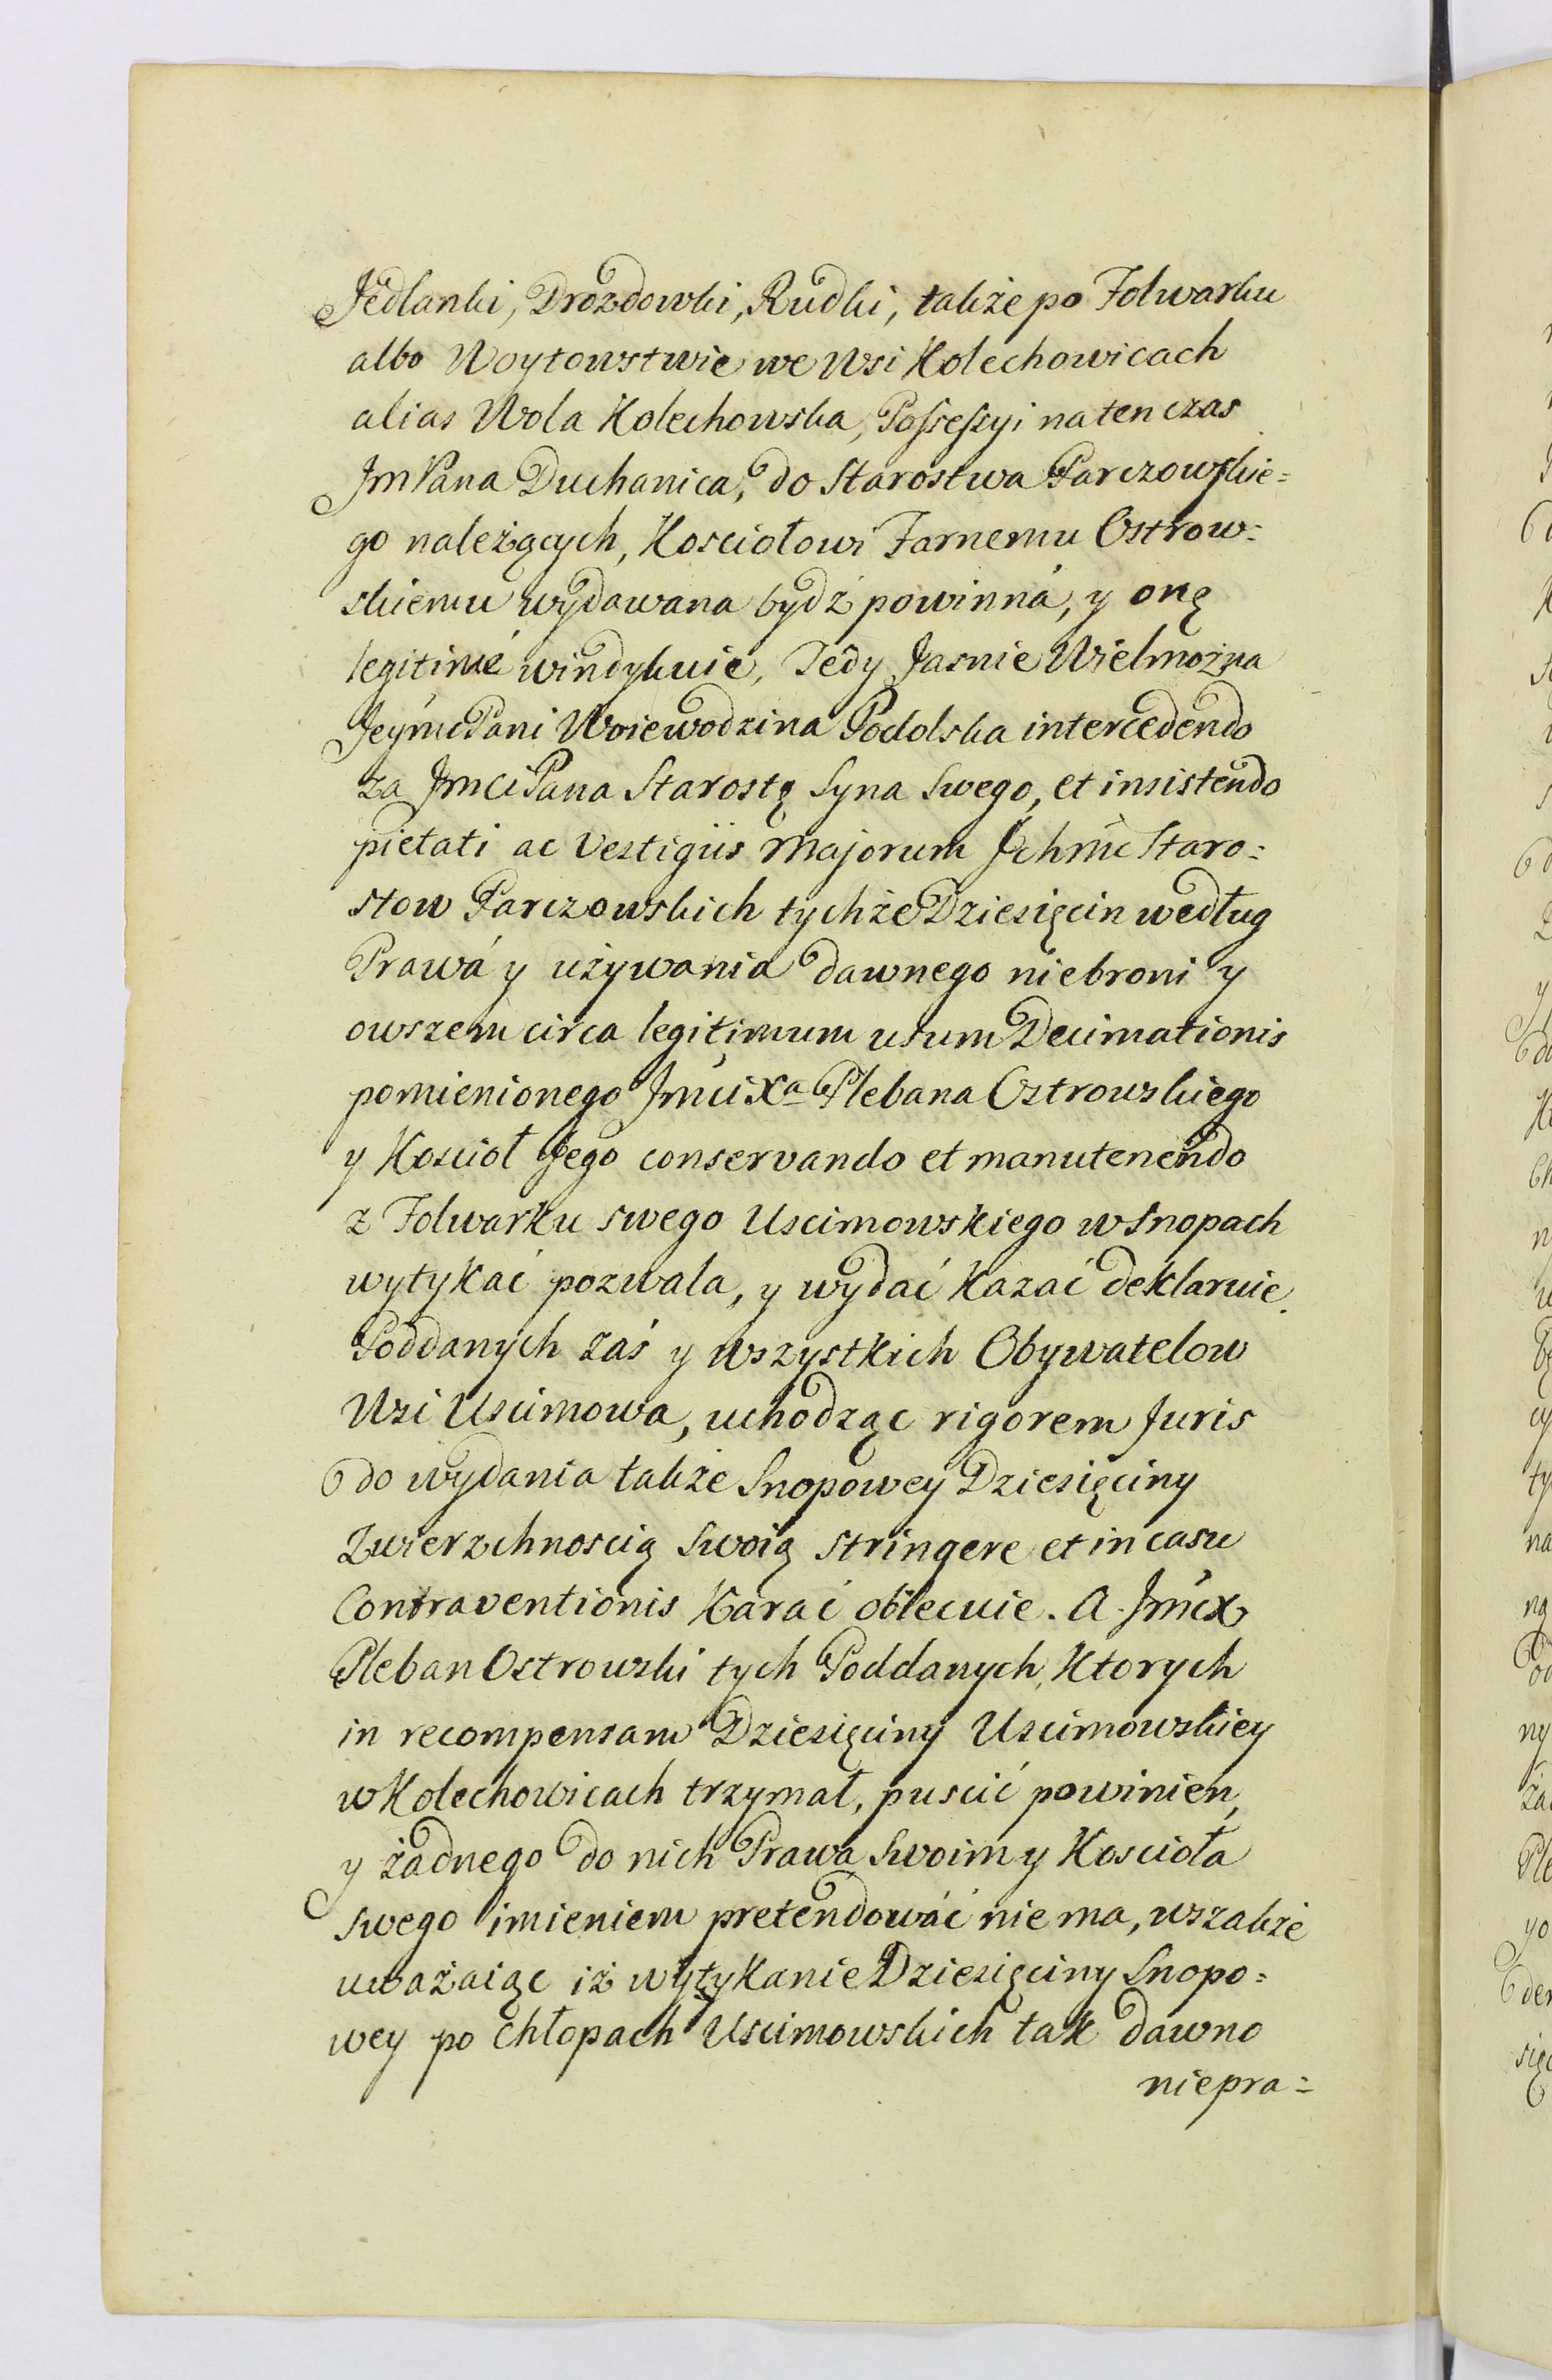 Jedlanki, Drozdowki, Rudki, także po Folwarku
albo Woytowstwie we Wsi Kolechowicach
alias Wola Kolechowska, Possessyi na ten czas
Jm Pana Duchanica, do Starostwa Parczowskie=
go należących, Kosciołowi Farnemu Ostrow=
skiemu wydawana bydź powinná, y onę
legitimé windykuie, Tedy Jasnie Wielmożna
Jeymc Pani Woiewodzina Podolska intercedendo
za Jmci Pana Starostę Syna Swego, et insistendo
pietati ac Vestigiis Majorum Jchmc Staro=
stow Parczowskich tychże Dziesięcin według
Prawá y używania dawnego niebroni y
owszem circa legitimum usum Decimationis
pomienionego Jmci Xa Plebana Ostrowskiego
y Kościoł Jego conservando et manutenendo
z Folwarku swego Uscimowskiego w snopach
wytykać pozwala, y wydać kazać deklaruie.
Poddanych zaś y wszystkich Obywatelow
Wsi Uscimowa, uchodząc rigorem Juris
do wydania także Snopowey Dziesięciny
Zwierzchnoscią Swoią stringere et in casu
Contraventionis karać obiecuie. A Jmć X
Pleban Ostrowski tych Poddanych, ktorych
in recompensam Dziesięciny Uscimowskiey
w Kolechowicach trzymał, puscić powinien,
y żadnego do nich Prawa Swoim y Kościoła
swego imieniem pretendowáć nie ma, wszakże
uważaiąc iż wytykanie Dziesięciny Snopo=
wey po Chłopach Uscimowskich tak dawno
niepra=